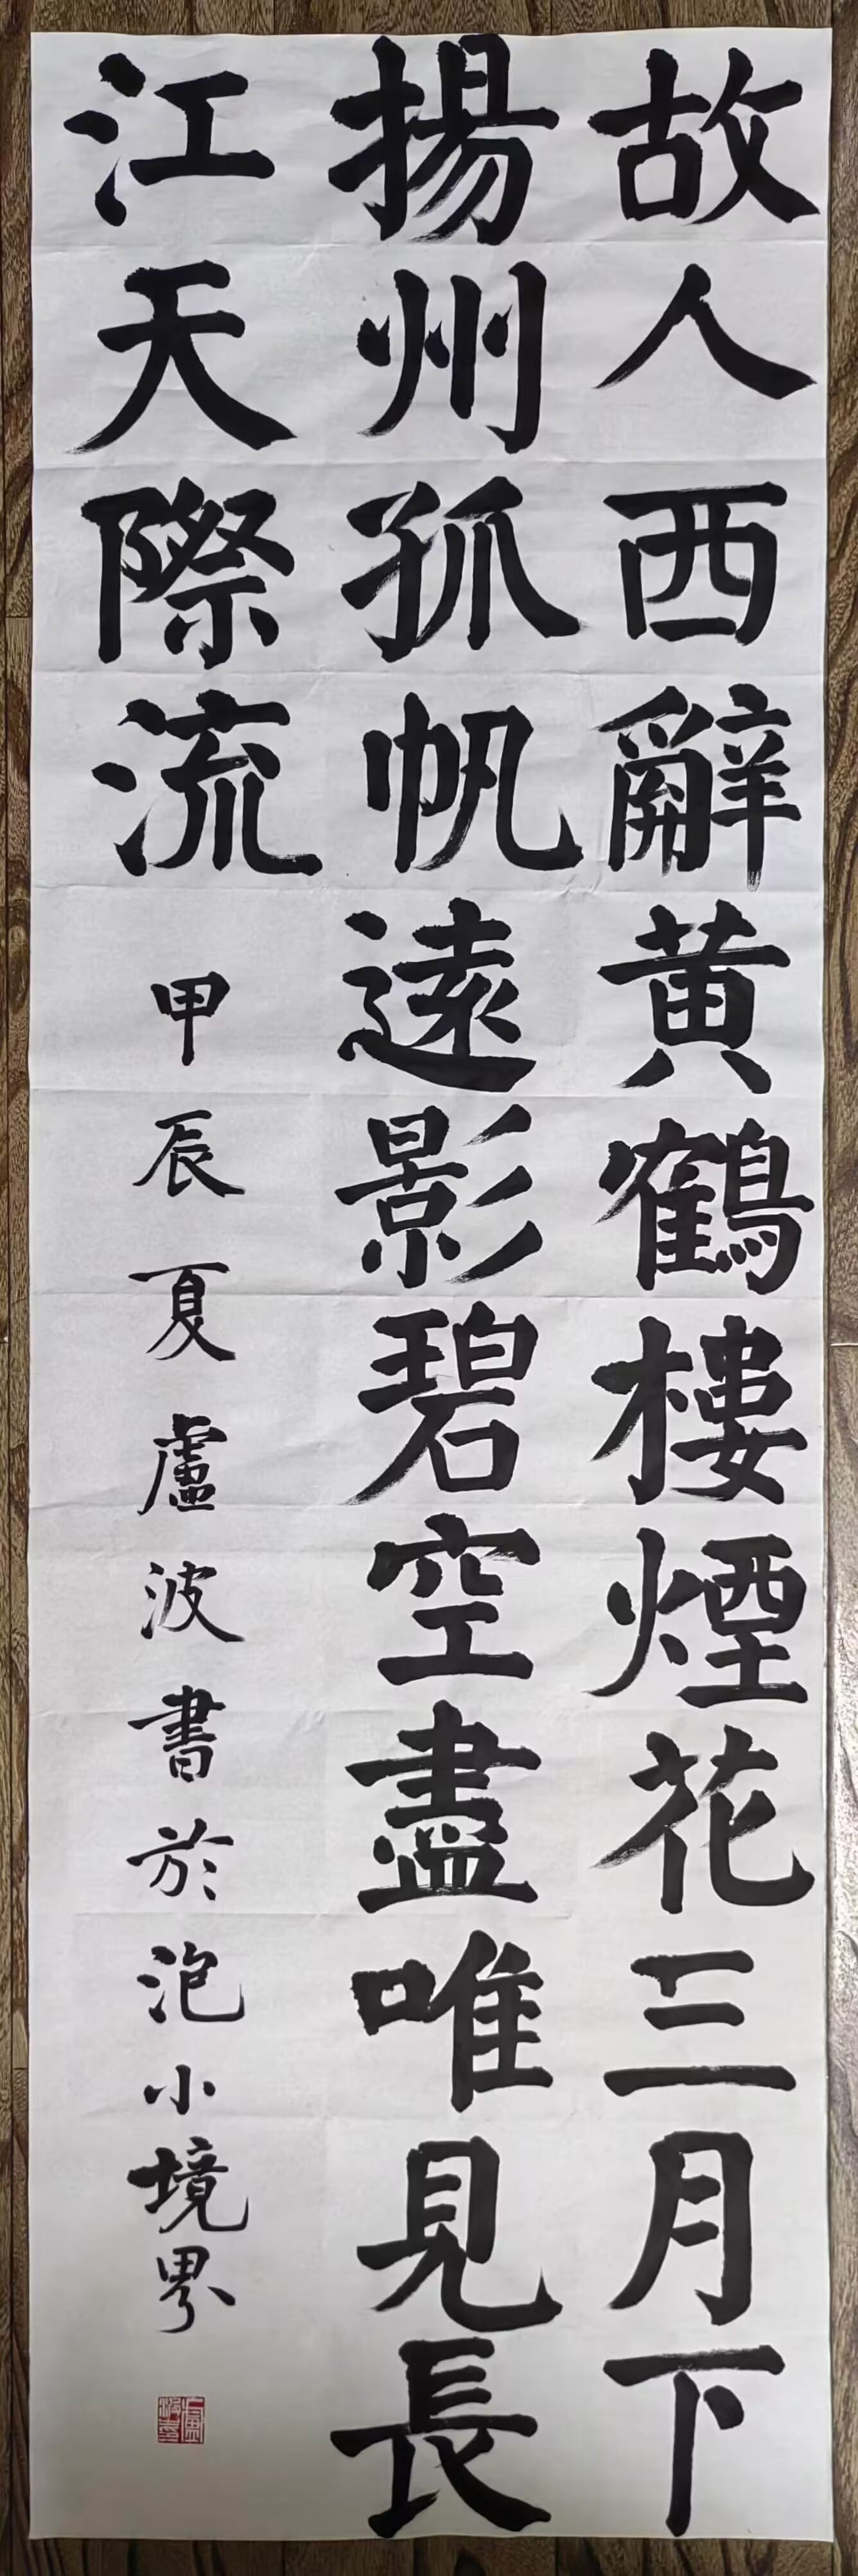 故人西辭黄鶴樓煙花三月下
揚州孤帆遠影碧空盡唯見長
江天際流
甲辰夏盧波書於滬小境界